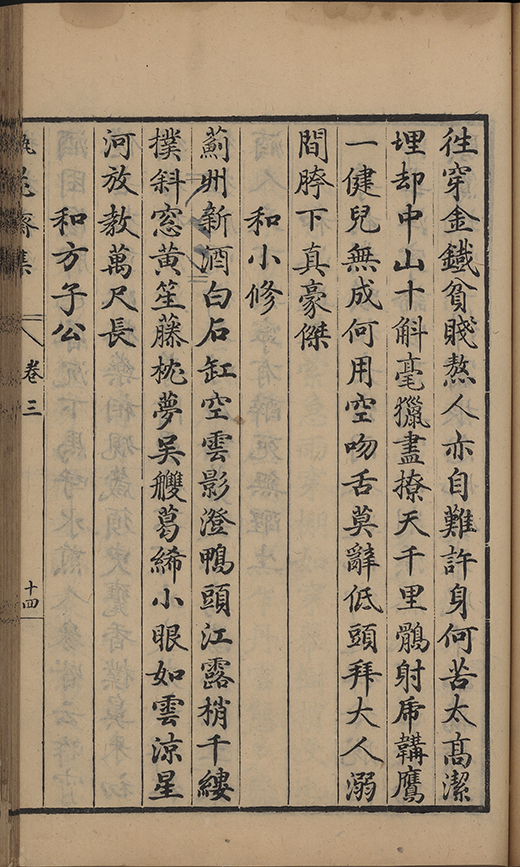 徃穿金鐵貧賤熬人亦自難許身何苦太高潔
埋却中山十斛毫獵盡撩天千里鶻射乕韝鷹
一健兒無成何用空吻舌莫辭低頭拜大人溺
間胯下真豪傑
和小修
薊州新酒白石缸空雲影澄鴨頭江露梢千縷
撲斜窓黄笙藤枕夢吴艭葛絺小眼如雲涼星
河放教萬尺長
和方子公
花齋集
卷三
十四